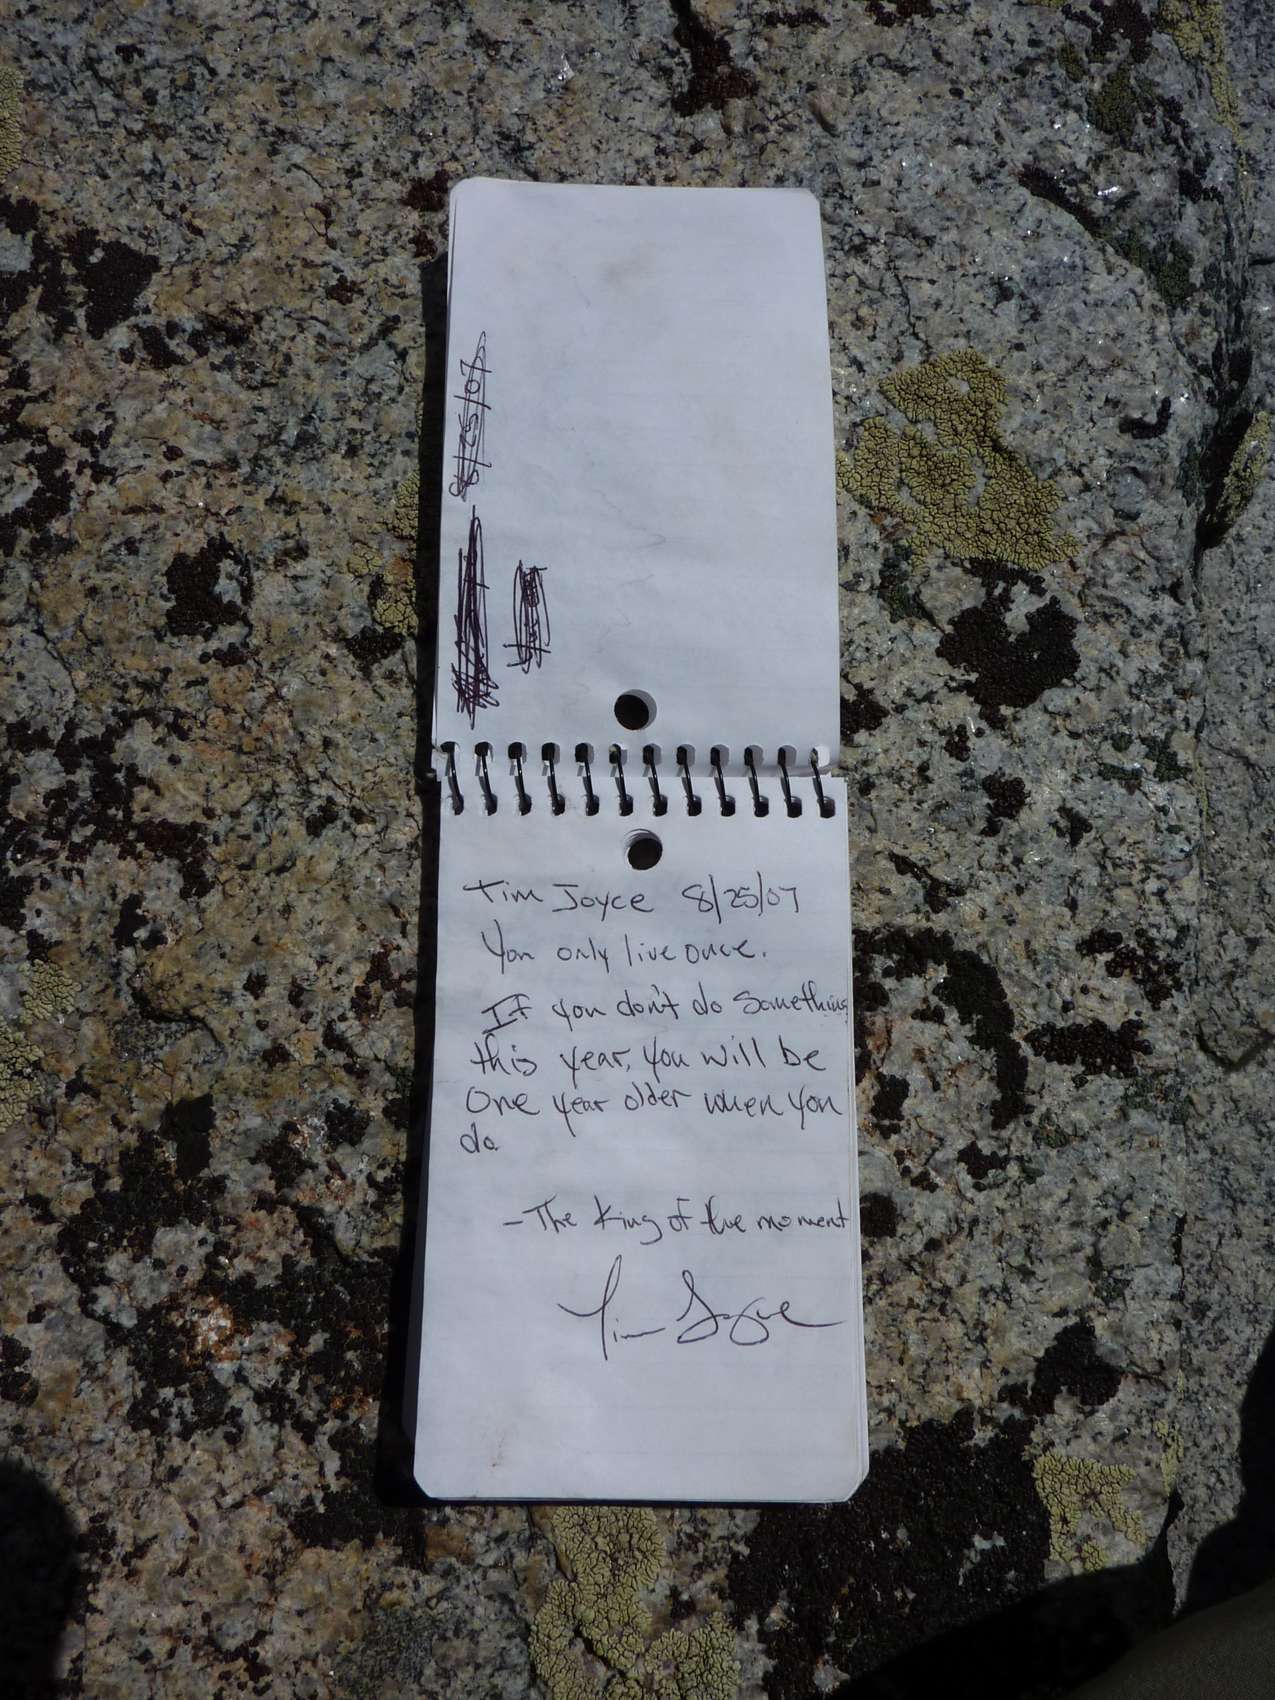 8/25/07
Tim Joyce 8/25/07
You only live once.
If you don't do something
this year, you will be
One year older when you
do.
- The King of the moment
Tim Joyce